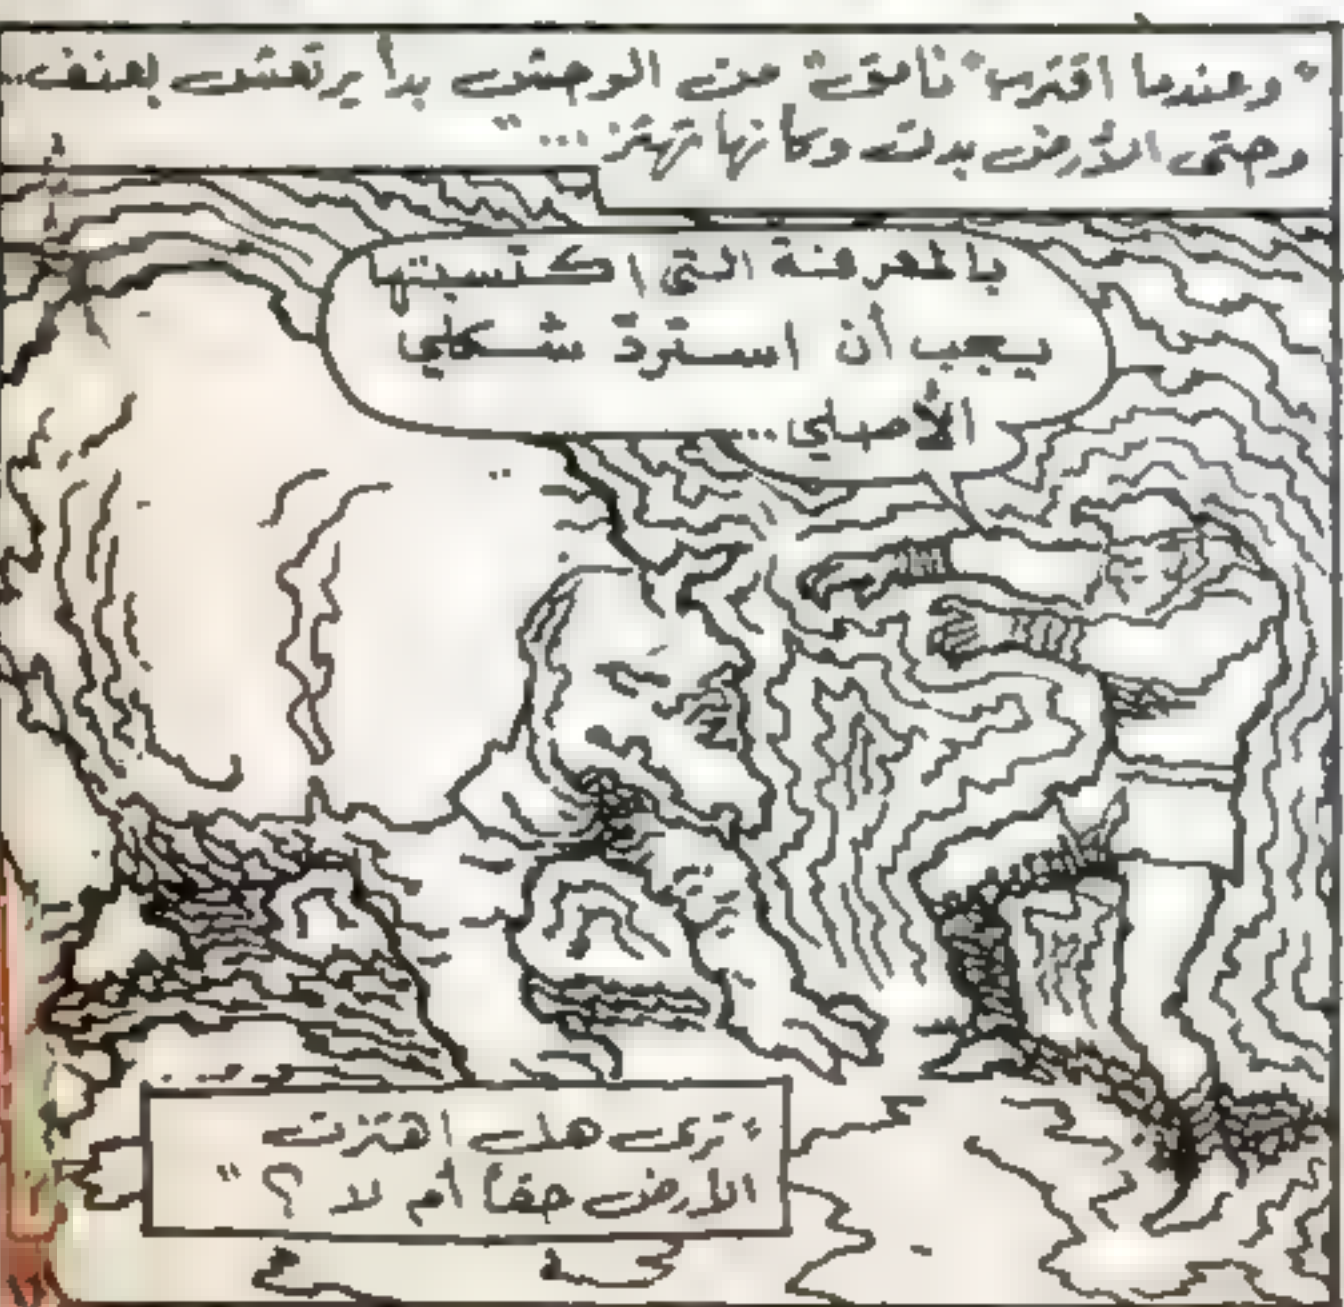 "وعندما اقترب "نامق" من الوحش بدأ يرتعش بعنف..
وحتى الأرض بدت وكأنها تهتز..."
بالمعرفة التى اكتسبتها
يجب أن استردّ شكلي
الأصلي...
"ترى هل اهتزت
الأرض حقاً أم لا ؟"